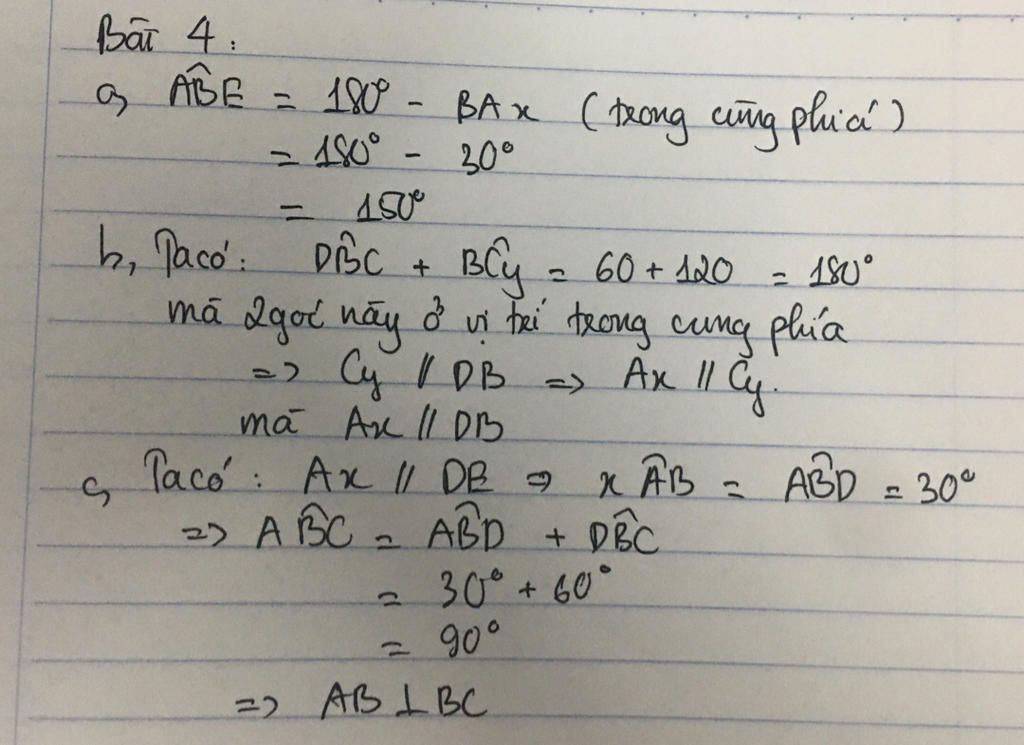 Bài 4:
a, ABÊ = 180° - BAx (trong cùng phía)
= 180° - 30°
= 150°
b, Ta có: DB̂C + BĈy = 60 + 120 = 180°
mà 2 góc này ở vị trí trong cung phía
=> Cy // DB => Ax // Cy.
mà Ax // DB
c, Ta có: Ax // DE => xÂB = AB̂D = 30°
=> AB̂C = AB̂D + DB̂C
= 30° + 60°
= 90°
=> AB ⊥ BC